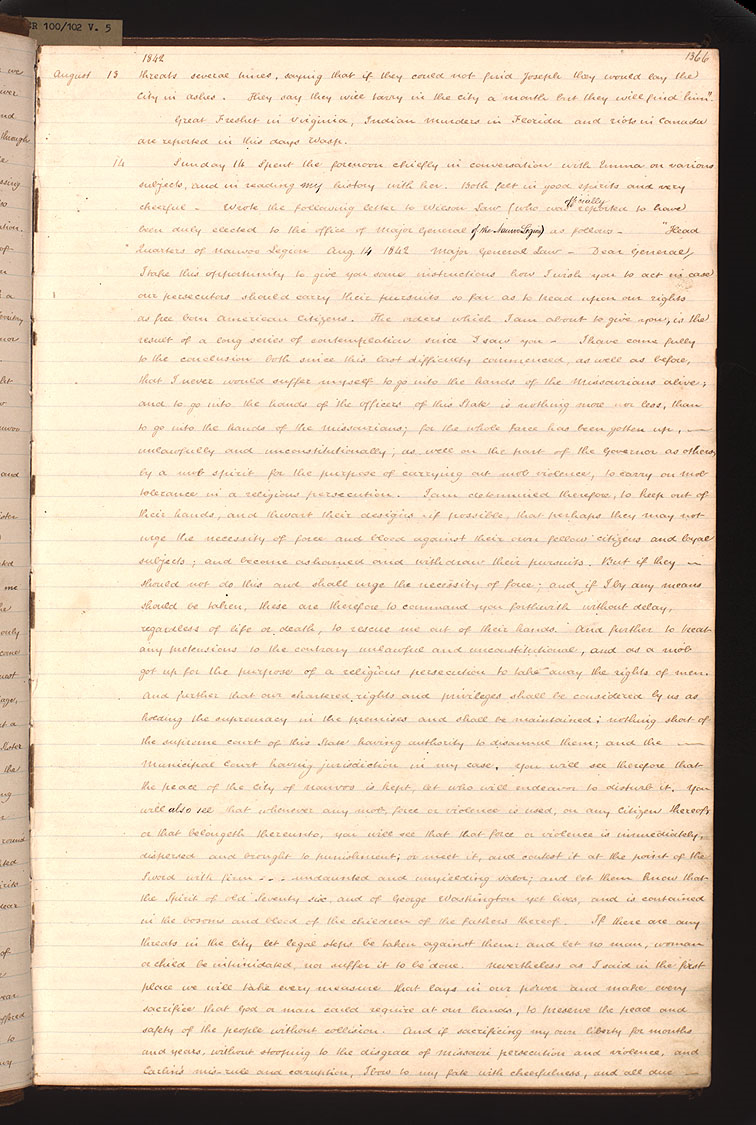 CR 100/102 V. 5
1842
1366
August 13 threats several times, saying that if they could not find Joseph they would lay the
City in ashes. They say they will tarry in the city a month but they will find him".
Great Freshet in Virginia, Indian murders in Florida and riots in Canada
are reported in this days Wasp.
14 Sunday 14 Spent the forenoon chiefly in conversation with Emma on various
subjects, and in reading my history with her. Both felt in good spirits and very
cheerful — Wrote the following letter to Wilson Law (who was officially reported to have
been duly elected to the office of Major General of the Nauvoo Legion) as follows — "Head
"Quarters of Nauvoo Legion Aug 14 1842 Major General Law — Dear General,
I take this opportunity to give you some instructions how I wish you to act in case
our persecutors should carry their pursuits so far as to tread upon our rights
as free born American Citizens. The orders which I am about to give you, is the
result of a long series of contemplation since I saw you — I have come fully
to the conclusion both since this last difficulty commenced, as well as before,
that I never would suffer myself to go into the hands of the Missourians alive;
and to go into the hands of the officers of this State is nothing more nor less, than
to go into the hands of the missourians; for the whole farce has been gotten up, —
unlawfully and unconstitutionally, as well on the part of the Governor as others,
by a mob spirit for the purpose of carrying out mob violence, to carry on mob
tolerance in a religious persecution. I am determined therefore, to keep out of
their hands, and thwart their designs if possible, that perhaps they may not
urge the necessity of force and blood against their own fellow citizens and loyal
subjects; and become ashamed and withdraw their pursuits. But if they —
should not do this and shall urge the necessity of force; and if I by any means
should be taken, these are therefore to command you forthwith without delay,
regardless of life or death, to rescue me out of their hands. And further to treat
any pretensions to the contrary unlawful and unconstitutional, and as a mob
got up for the purpose of a religious persecution to take away the rights of men.
And further that our chartered rights and privileges shall be considered by us as
holding the supremacy in the premises and shall be maintained; nothing short of
the supreme court of this State having authority to disannul them; and the —
Municipal Court having jurisdiction in my case. You will see therefore that
the peace of the City of Nauvoo is kept, let who will endeavor to disturb it. You
will also see that whenever any mob, force or violence is used, on any Citizen thereof,
or that belongeth thereunto, you will see that that force or violence is immediately,
dispersed and brought to punishment; or meet it, and contest it at the point of the
Sword with firm - - . undaunted and unyielding valor; and let them know that
the Spirit of old Seventy six, and of George Washington yet lives, and is contained
in the bosoms and blood of the children of the fathers thereof. If there are any
threats in the City let legal steps be taken against them: and let no man, woman
or child be intimidated, nor suffer it to be done. Nevertheless as I said in the first
place we will take every measure that lays in our power and make every
sacrifice that God or man could require at our hands, to preserve the peace and
safety of the people without collision. And if sacrificing my own liberty for months
and years, without stooping to the disgrace of Missouri persecution and violence, and
Carlin's mis-rule and corruption, I bow to my fate with cheerfulness, and all due —